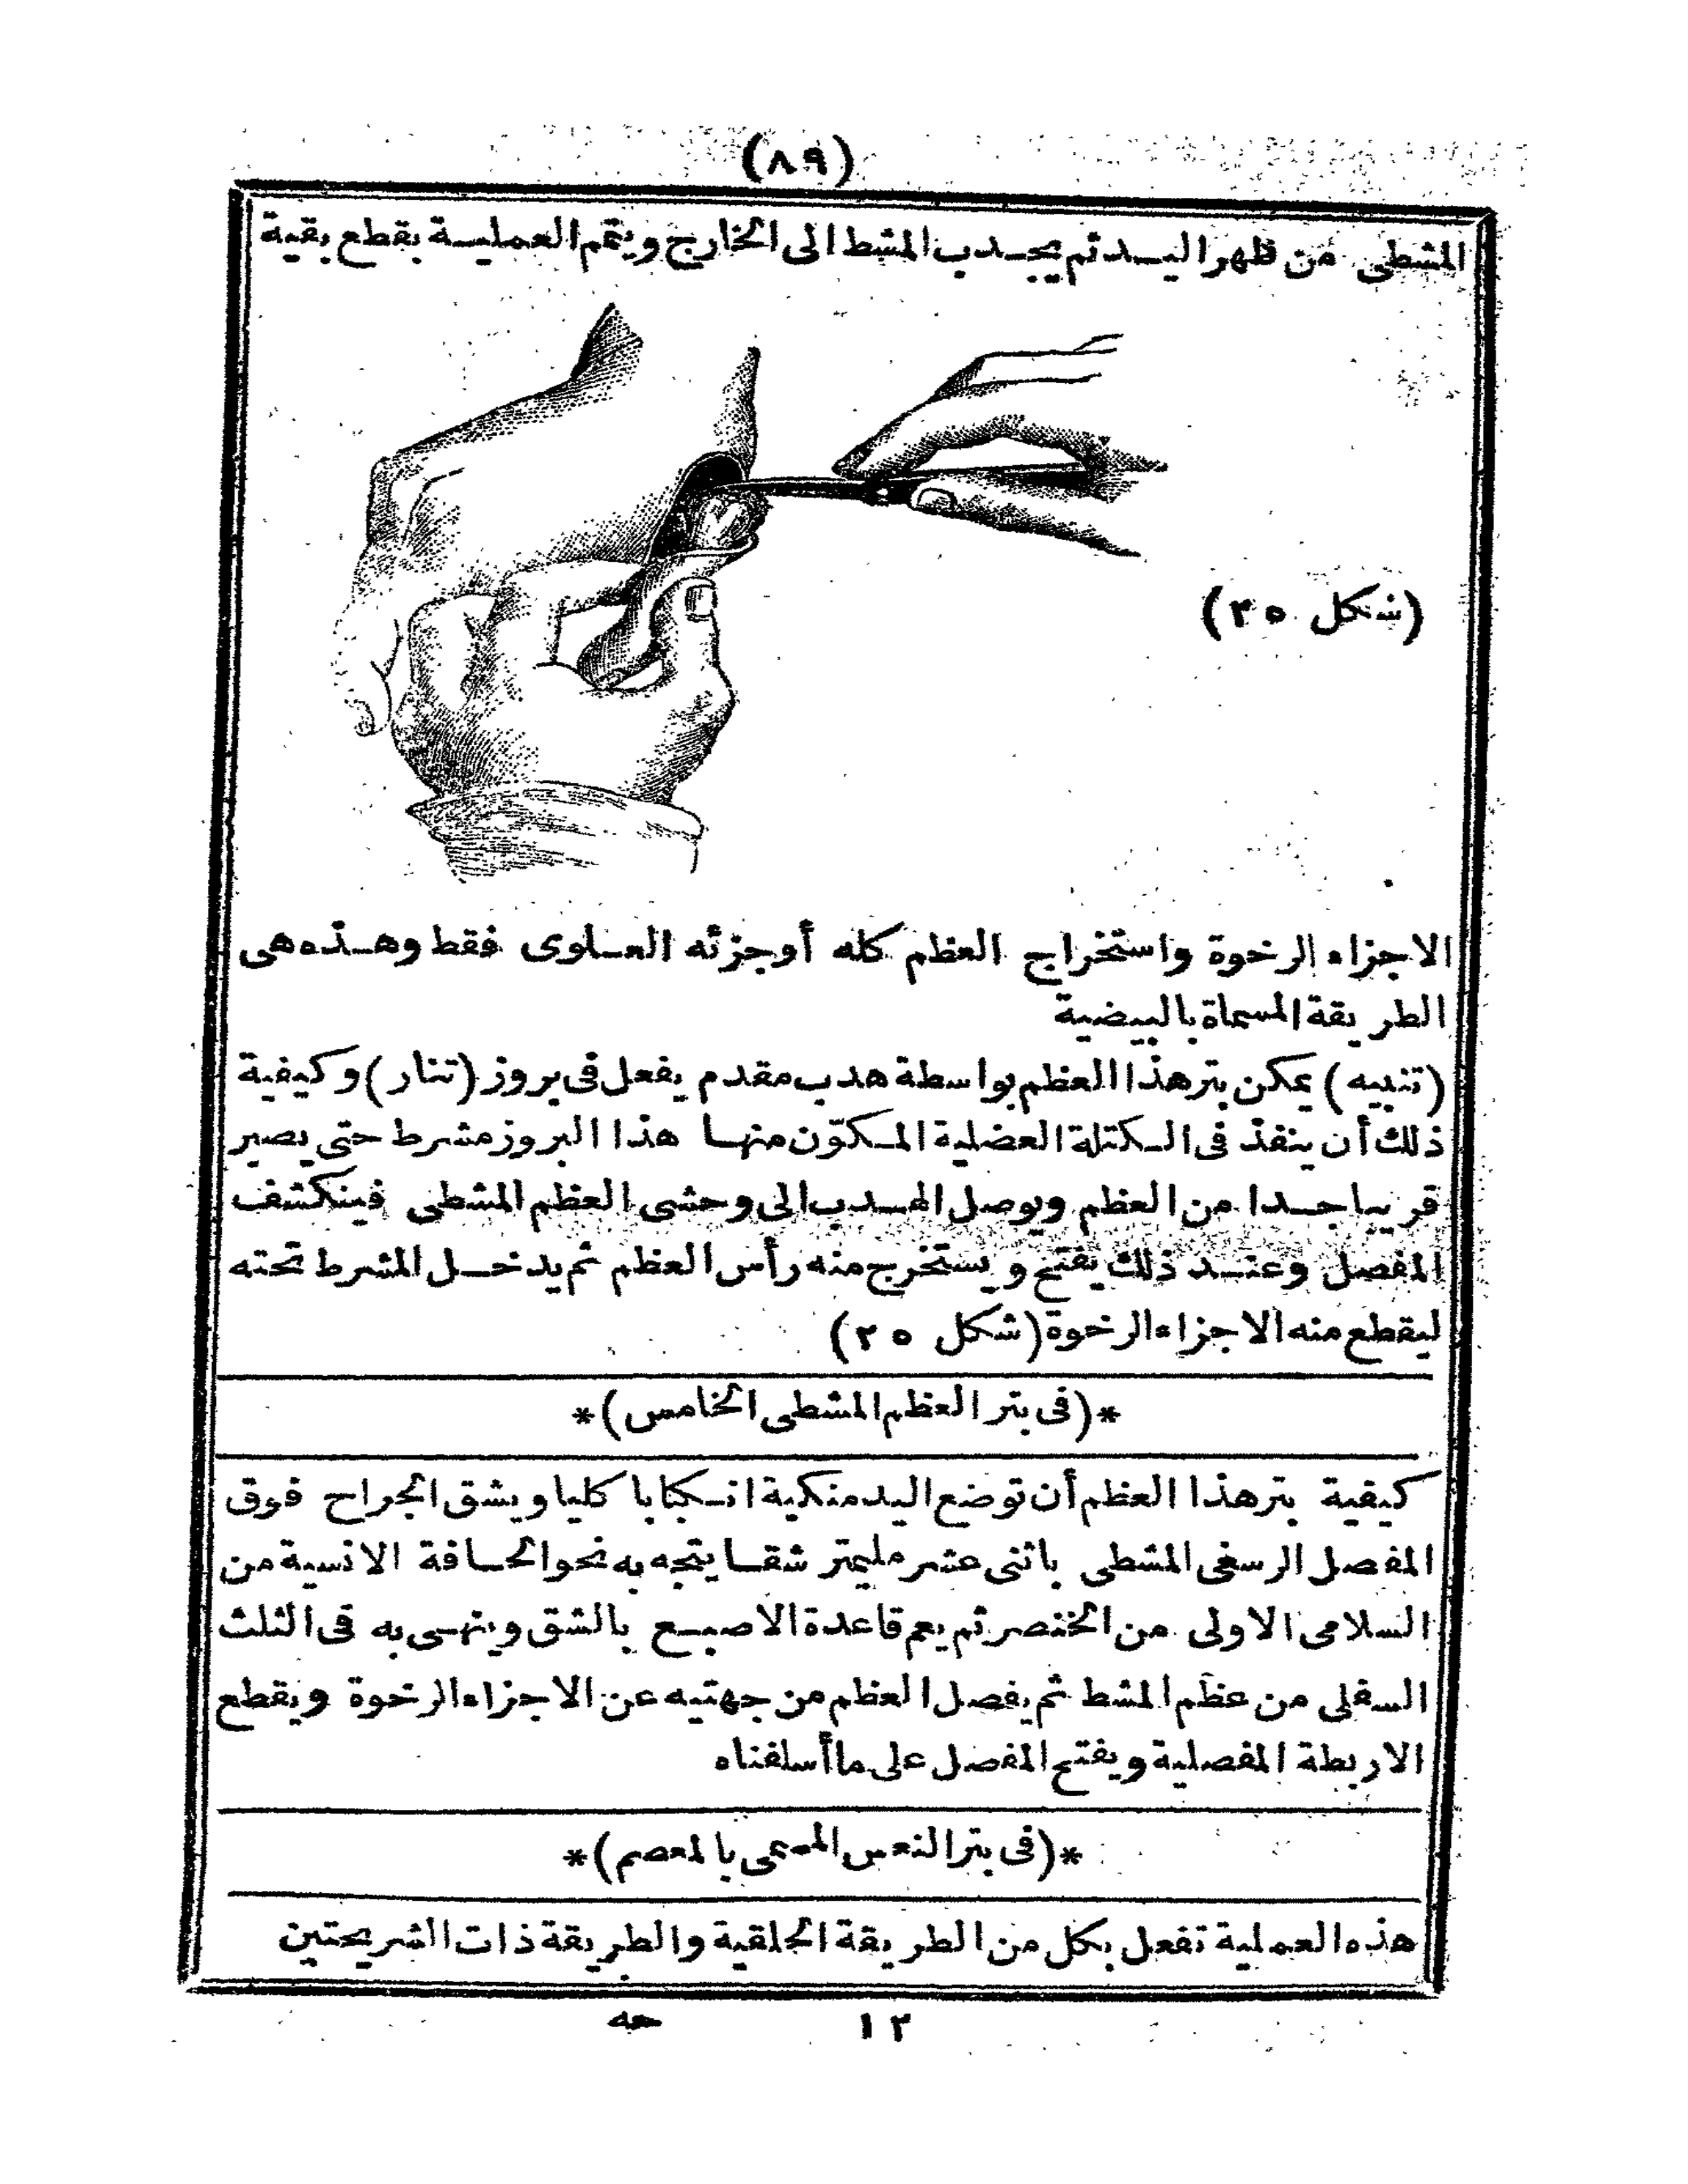 (٨٩)
المشطى من ظهر اليد ثم يجذب المشط الى الخارج ويتمم العملية بقطع بقية
(شكل ٢٥)
الاجزاء الرخوة واستخراج العظم كله أوجزئه العلوى فقط وهذه هى
الطريقة المسماة بالبيضية
(تنبيه) يمكن بترهذا العظم بواسطة هدب مقدم يفعل فى بروز (تنار) وكيفية
ذلك أن ينفذ فى الكتلة العضلية المكوّن منها هذا البروز مشرط حتى يصير
قريبا جدا من العظم ويوصل الهدب الى وحشى العظم المشطى فينكشف
المفصل وعند ذلك يفتح ويستخرج منه رأس العظم ثم يدخل المشرط تحته
ليقطع منه الاجزاء الرخوة (شكل ٢٥)
*(فى بتر العظم المشطى الخامس)*
كيفية بترهذا العظم أن توضع اليد منكبة انكبابا كليا ويشق الجراح فوق
المفصل الرسغى المشطى باثنى عشر مليمتر شقا يتجه به نحو الحافة الانسية من
السلامى الاولى من الخنصر ثم يعم قاعدة الاصبع بالشق وينهى به فى الثلث
السفلى من عظم المشط ثم يفصل العظم من جهتيه عن الاجزاء الرخوة ويقطع
الاربطة المفصلية ويفتح المفصل على ما أسلفناه
*(فى بتر النعس المسمى بالمعصم)*
هذه العملية تفعل بكل من الطريقة الحلقية والطريقة ذات الشريحتين
١٢